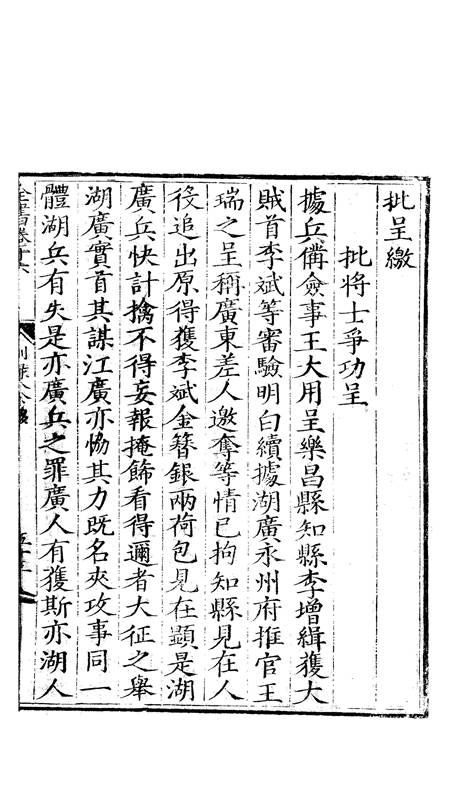 批呈繳
批將士爭功呈
據兵備僉事王大用呈樂昌縣知縣李增緝獲大
賊首李斌等審驗明白續據湖廣永州府推官王
瑞之呈稱廣東差人邀奪等情已拘知縣見在人
役追出原得獲李斌金簪銀兩荷包見在顯是湖
廣兵快計擒不得妄報掩飾看得邇者大征之舉
湖廣實首其謀江廣亦恊其力既名夾攻事同一
體湖兵有失是亦廣兵之罪廣人有獲斯亦湖人
全書卷十六
五十三